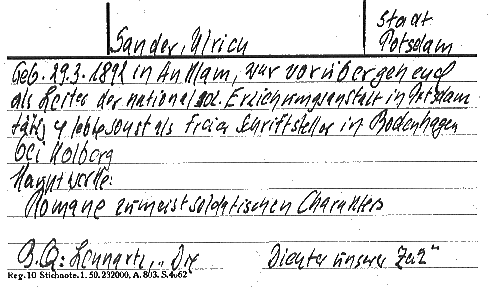 Stadt
Sander, Ulrich Potsdam
Geb. 29.3.1892 in Anklam, war vorübergehend
als Leiter der nationalsoz. Erziehungsanstalt in Potsdam
tätig u lebte sonst als freier Schriftsteller in Bodenhagen
bei Kolberg
Hauptwerke:
Romane zumeist soldatischen Charakters
B.Q.: Lennartz, „Die Dichter unserer Zeit"
Reg. 10 Stichnote. 1. 50. 232000. A. 803. S. 4.62